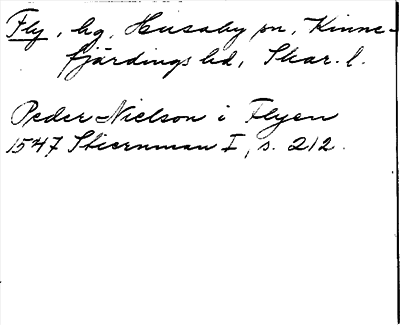 Fly, hg, Husaby sn, Kinne-
fjärdings hd, Skar. l.
Peder Nielson i Flyen
1547 Stiernman I, s. 212.